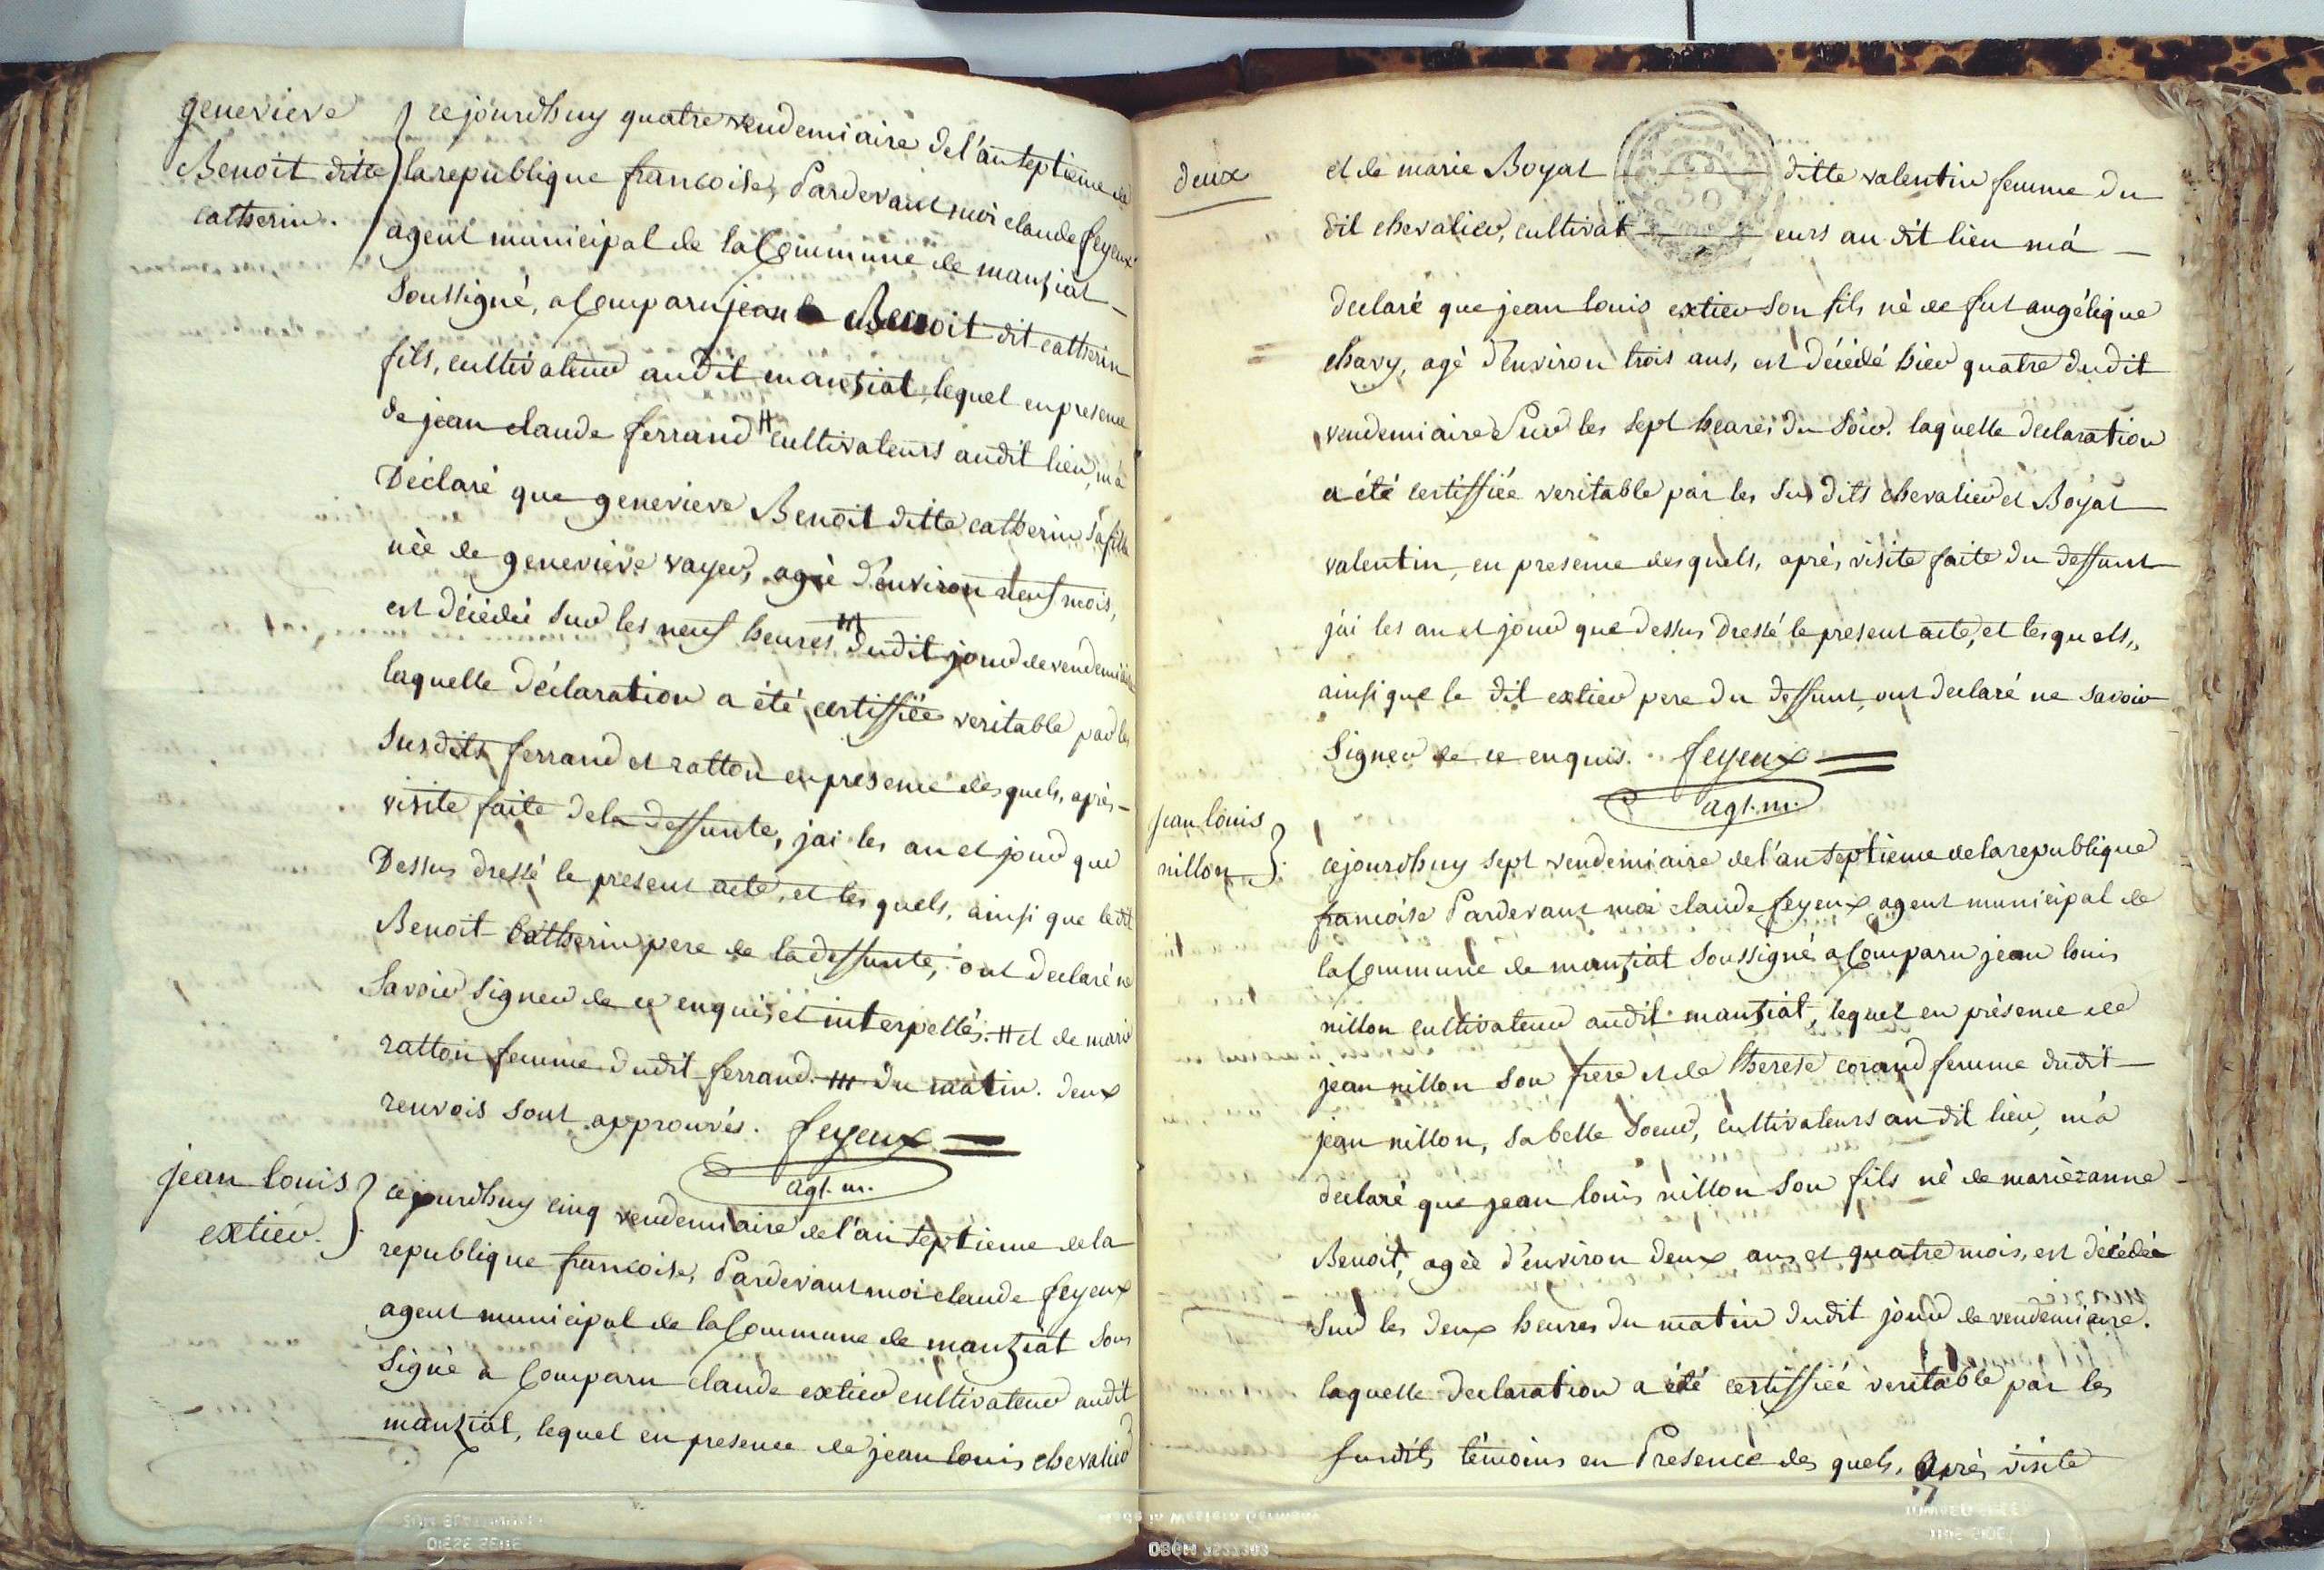 genevieve
Benoit ditte
catherin.
cejourdhuy quatre vendemiaire de l'an septieme de
la republique francoise, Pardevant moi claude feyeux
agent municipal de la Commune de manziat
soussigné, a Comparu jean Benoit dit catherin
fils, cultivateur audit manziat, lequel en presence
de jean claude ferrand # cultivateurs audit lieu, m'a
Déclaré que genevieve Benoit ditte catherin sa fille
née de genevieve vayer, agée d'environ neuf mois,
est décédée sur les neuf heures ### dudit jour de vendemiaire
laquelle déclaration a été certiffiée veritable par les
susdits ferrand et ratton en presence desquels, après
visite faite de la deffunte, jai les an et jour que
Dessus dressé le present acte, et lesquels, ainsi que le dit
Benoit Catherin pere de la deffunte, ont declaré ne
Savoir signer de ce enquis et interpellés. # et de marie
ratton femme dudit ferrand. ### du matin. deux
renvois sont approuvés. feyeux
agt. m.
jean louis
extier.
cejourdhuy cinq vendemiaire de l'an septieme de la
republique francoise, Pardevant moi claude feyeux
agent municipal de la Commune de manziat sous
signé a Comparu claude extier cultivateur audit
manziat, lequel en presence de jean louis chevalier
deux
et de marie Boyat ditte valentin femme du
dit chevalier, cultivateurs au dit lieu m'á
declaré que jean louis extier son fils né de fut angélique
chavy, agé d'environ trois ans, est décédé hier quatre dudit
vendemiaire Sur les sept heures du soir. laquelle declaration
a été certiffiée veritable par les susdits chevalier et Boyat
valentin, en presence desquels, après visite faite du deffunt
jai les an et jour que dessus dressé le present acte, et lesquels,
ainsi que le dit extier pere du deffunt, ont declaré ne savoir
Signer de ce enquis. feyeux
agt. m.
jean louis
nillon
cejourdhuy sept vendemiaire de l'an septieme de la republique
francoise Pardevant moi claude feyeux agent municipal de
la Commune de manziat soussigné a Comparu jean louis
nillon cultivateur audit manziat, lequel en présence de
jean nillon son frere et de therese corand femme dudit
jean nillon, sa belle soeur, cultivateurs audit lieu, m'a
declaré que jean louis nillon son fils né de marie anne
Benoit, agée d'environ deux ans et quatre mois, est décédée
sur les deux heures du matin dudit jour de vendemiaire.
laquelle declaration a été certiffiée veritable par les
susdits témoins en Presence des quels, Après visite